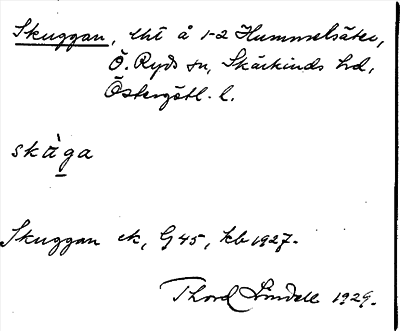 Skuggan, lht å 1-2 Hummelsäter,
Ö. Ryds sn, Skärkinds hd,
Östergötl. l.
skä̀ga
Skuggan ek, G 45, kb 1927.
Thord Lindell 1929.